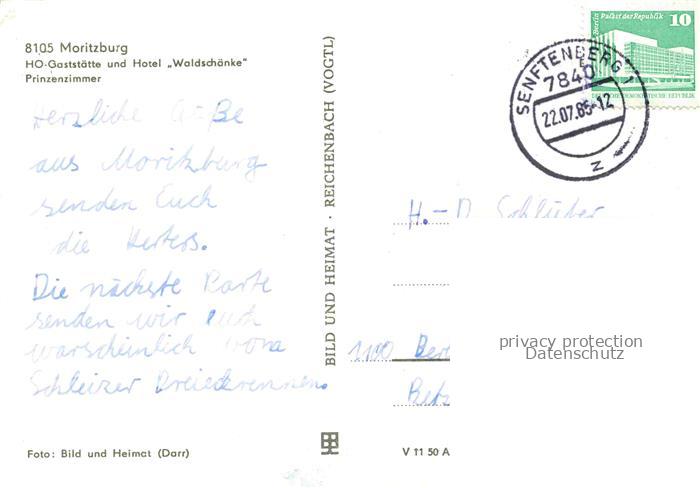 8105 Moritzburg
HO-Gaststätte und Hotel „Waldschänke"
Prinzenzimmer
Herzliche Grüße
aus Moritzburg
senden Euch
die Herters.
Die nächste Karte
senden wir euch
warscheinlich vom
Schleizer Dreieckrennen.
Foto: Bild und Heimat (Darr)
BILD UND HEIMAT · REICHENBACH (VOGTL)
V 11 50 A
Berlin Palast der Republik 10
DEUTSCHE DEMOKRATISCHE REPUBLIK
SENFTENBERG 1
7840
22.07.85-12
z
H.-D. Schlüter
1100 Ber
Betz
privacy protection
Datenschutz